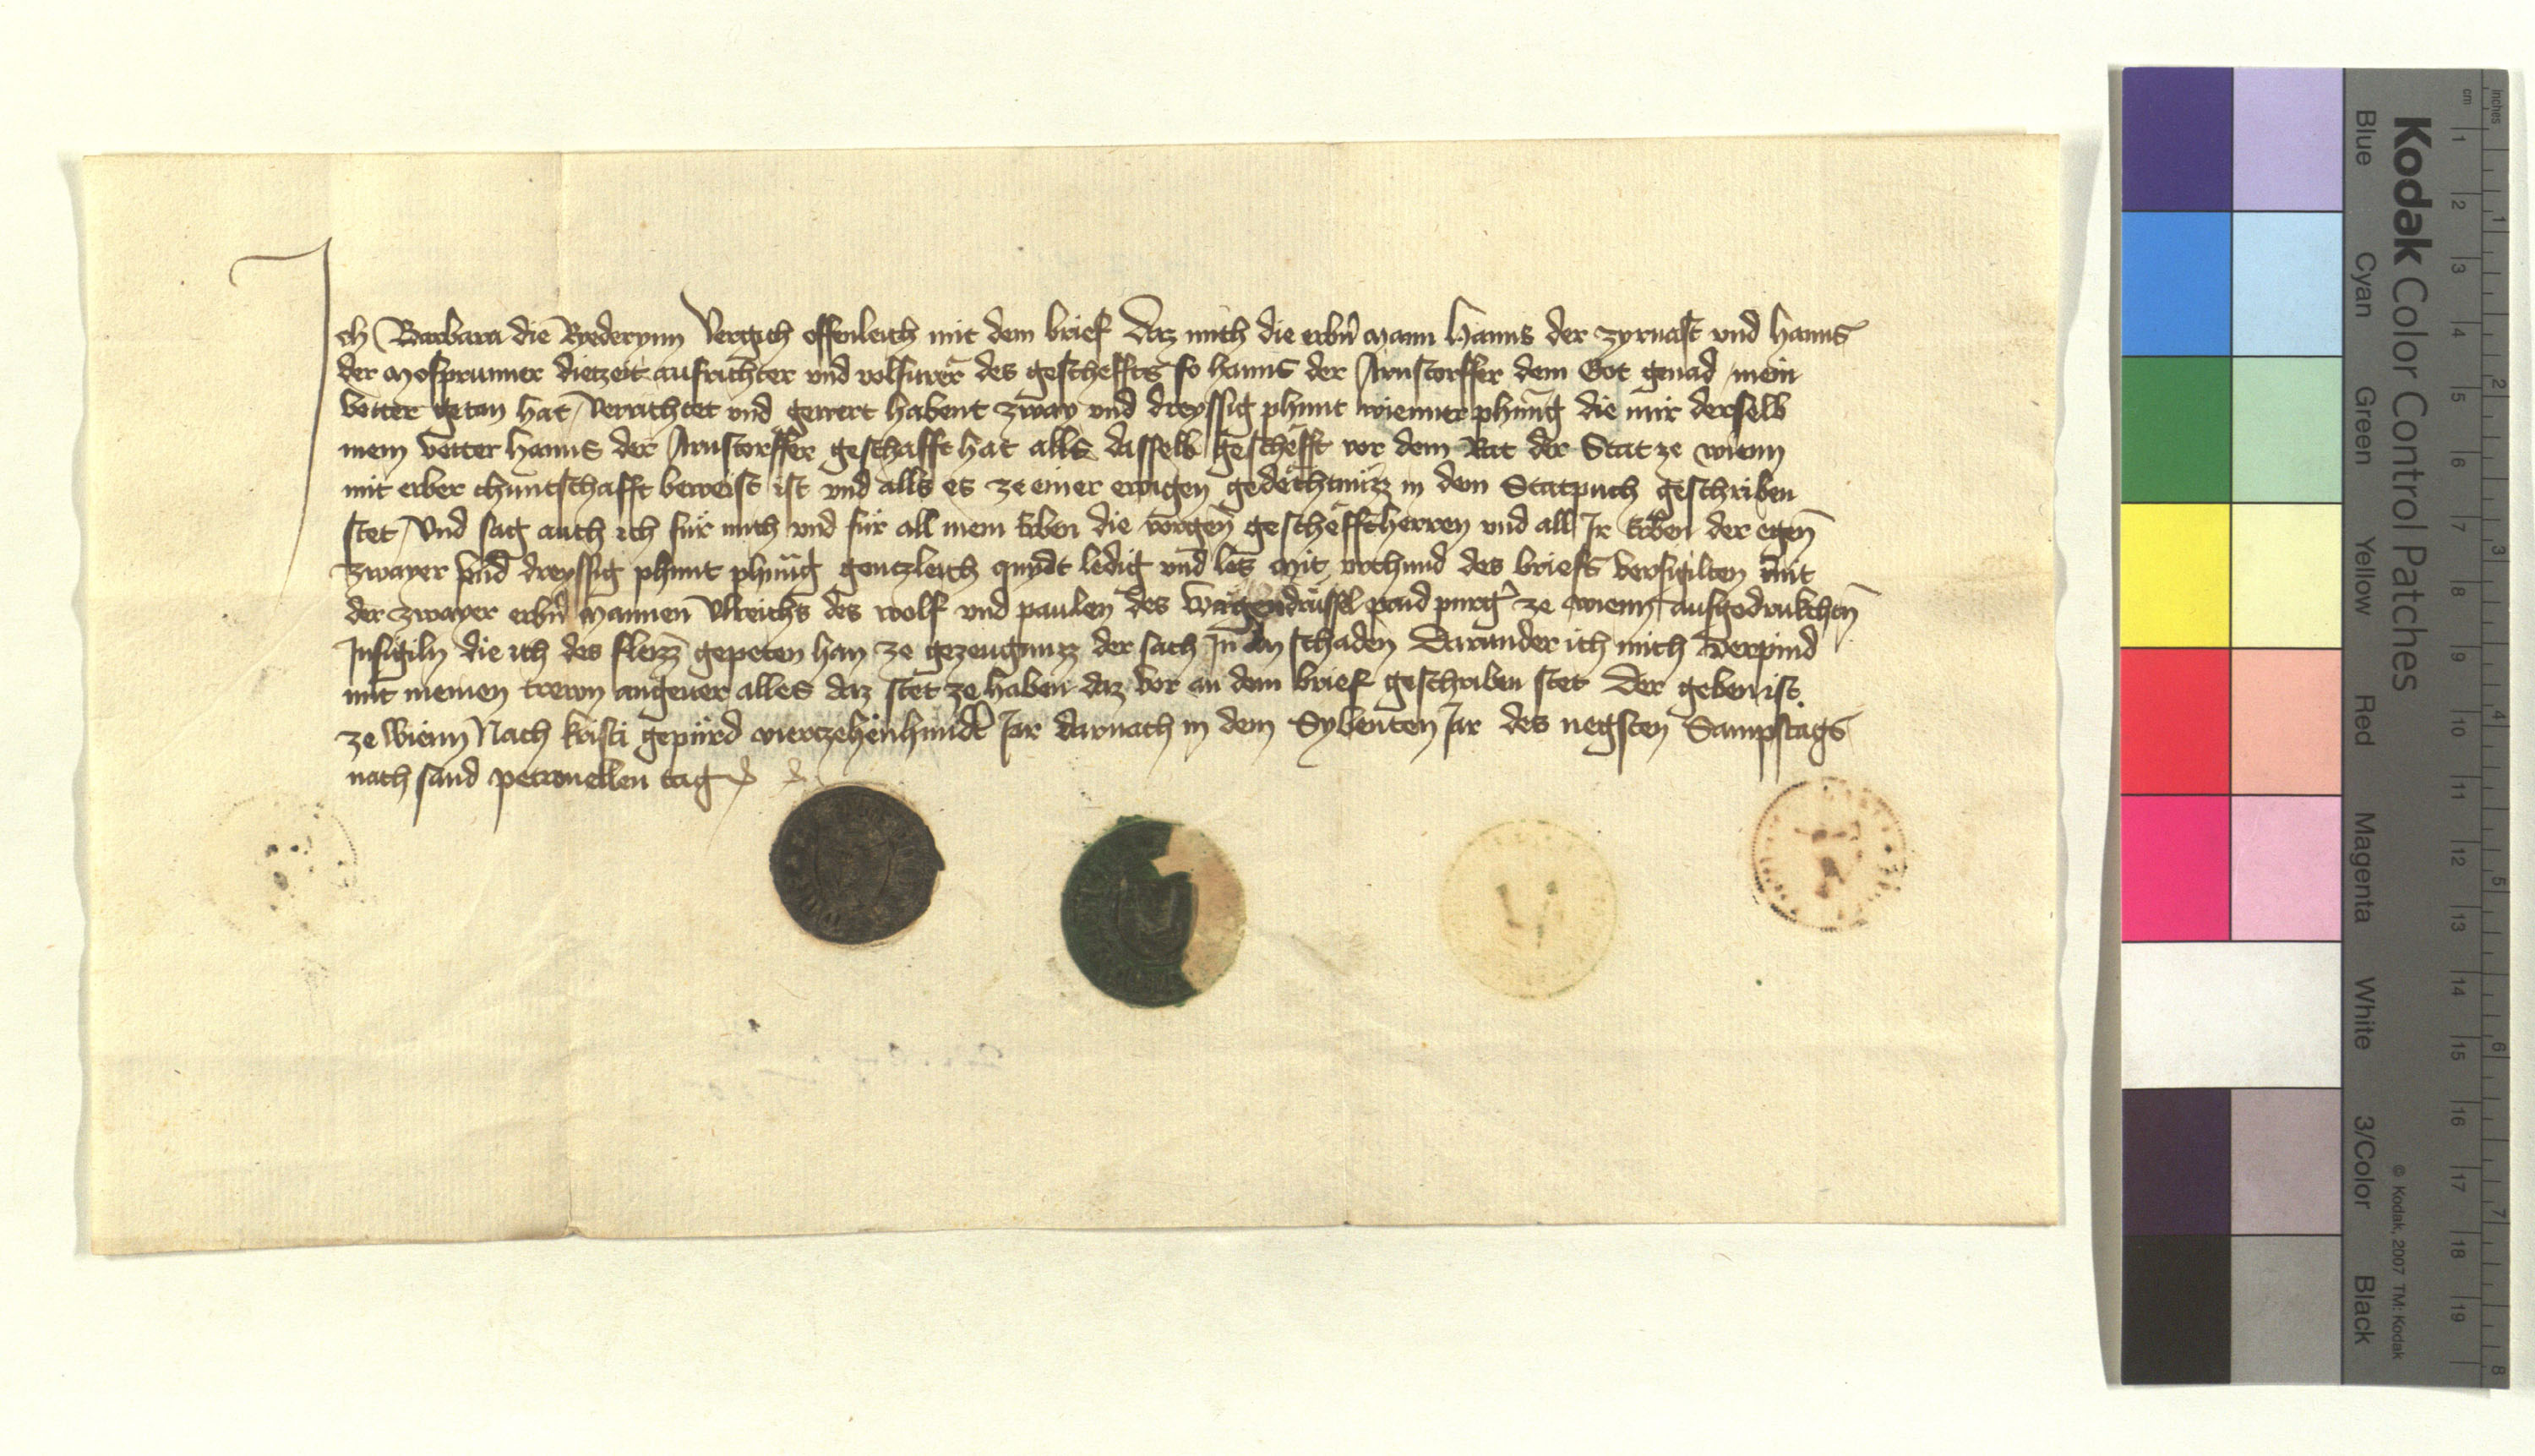 Ich Barbara die Ryederynn Vergich offenleich mit dem brief Daz mich die erbñ mann Hanns der zyrnast vnd hanns
der Mosprunner diezeit aufrichter vnd volfürer des gescheffts so hanns der Arnstorffer dem Got genad mein
vetter getan hat Verrichtet vnd gewert habent zway vnd dreyssig phunt wienner phung̃ die mir derselb
mein vetter hanns der Arnstorffer geschafft hat alls dasselb geschefft vor dem Rat der Stat ze wienn
mit erber chuntschafft beweist ist vnd alls es ze einer ewigen gedechtnüzz in dem Statpuch geschriben
stet Vnd sag auch ich für mich vnd für all mein Erben die vorgeñ gescheffthereren vnd all Ir Erben der egeñ
zwayer vnd dreyssig phunt phung̃ genczleich quydt ledig vnd les Mit vrchund des briefs versigilten mit
der zwayer erbñ Mannen Vlreichs des wolf vnd paulen des Wagendrüssel paid purg̾ ze wienn aufgedrukchtñ
Insigiln die ich des fleizz gepeten han ze gezeugnuzz der sach In an schaden Darunder ich mich verpind
mit meinen trewn angeuer alles daz stet ze haben daz vor an dem brief geschriben stet Der geben ist
ze Wienn Nach kristi gepürd vierczehenhundt̾ Jar darnach in dem Sybenten Jar des negsten Sampstags
nach sand petronellen tag
Kodak Color Control Patches
Blue Cyan Green Yellow Red Magenta White 3/Color Black
© Kodak, 2007 TM: Kodak
cm 1 2 3 4 5 6 7 8 9 10 11 12 13 14 15 16 17 18 19
inches 1 2 3 4 5 6 7 8